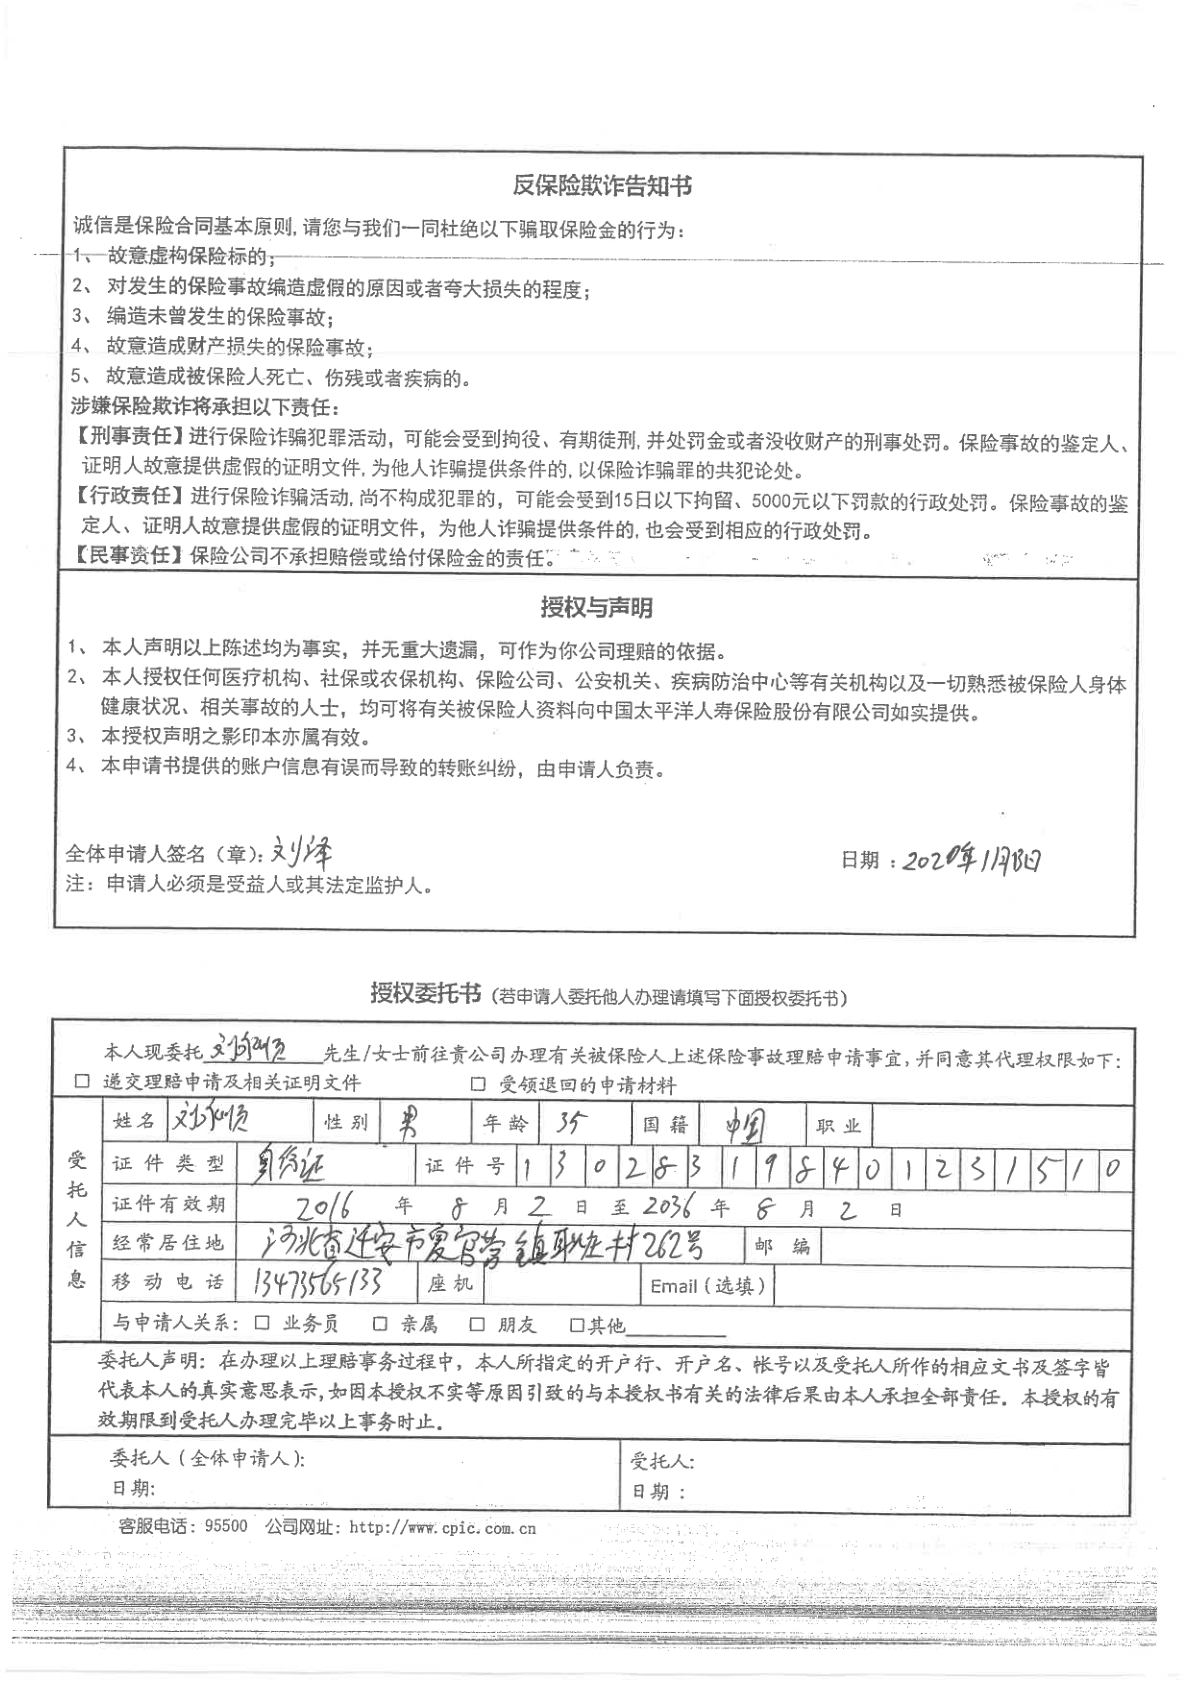 反保险欺诈告知书
诚信是保险合同基本原则,请您与我们一同杜绝以下骗取保险金的行为:
1、 故意虚构保险标的;
2、 对发生的保险事故编造虚假的原因或者夸大损失的程度;
3、 编造未曾发生的保险事故;
4、 故意造成财产损失的保险事故;
5、 故意造成被保险人死亡、伤残或者疾病的。
涉嫌保险欺诈将承担以下责任:
【刑事责任】进行保险诈骗犯罪活动, 可能会受到拘役、有期徒刑,并处罚金或者没收财产的刑事处罚。保险事故的鉴定人、
证明人故意提供虚假的证明文件,为他人诈骗提供条件的,以保险诈骗罪的共犯论处。
【行政责任】进行保险诈骗活动,尚不构成犯罪的, 可能会受到15日以下拘留、5000元以下罚款的行政处罚。保险事故的鉴
定人、证明人故意提供虚假的证明文件, 为他人诈骗提供条件的,也会受到相应的行政处罚。
【民事责任】保险公司不承担赔偿或给付保险金的责任。
授权与声明
1、 本人声明以上陈述均为事实, 并无重大遗漏, 可作为你公司理赔的依据。
2、 本人授权任何医疗机构、社保或农保机构、保险公司、公安机关、疾病防治中心等有关机构以及一切熟悉被保险人身体
健康状况、相关事故的人士, 均可将有关被保险人资料向中国太平洋人寿保险股份有限公司如实提供。
3、 本授权声明之影印本亦属有效。
4、 本申请书提供的账户信息有误而导致的转账纠纷, 由申请人负责。
全体申请人签名（章）: 刘泽 日期 : 2020年1月 日
注: 申请人必须是受益人或其法定监护人。
授权委托书（若申请人委托他人办理请填写下面授权委托书）
本人现委托 刘 顺 先生/女士前往贵公司办理有关被保险人上述保险事故理赔申请事宜,并同意其代理权限如下:
□ 递交理赔申请及相关证明文件 □ 受领退回的申请材料
受托人信息
姓名 刘 顺 性别 男 年龄 35 国籍 中国 职业
证件类型 身份证 证件号 130283198401231510
证件有效期 2016 年 8 月 2 日 至 2036 年 8 月 2 日
经常居住地 河北省迁安市夏官营镇 庄村262号 邮编
移动电话 13473565133 座机 Email(选填)
与申请人关系: □ 业务员 □ 亲属 □ 朋友 □其他
委托人声明: 在办理以上理赔事务过程中, 本人所指定的开户行、开户名、帐号以及受托人所作的相应文书及签字皆
代表本人的真实意思表示,如因本授权不实等原因引致的与本授权书有关的法律后果由本人承担全部责任. 本授权的有
效期限到受托人办理完毕以上事务时止.
委托人(全体申请人): 受托人:
日期: 日期 :
客服电话: 95500 公司网址: http://www.cpic.com.cn